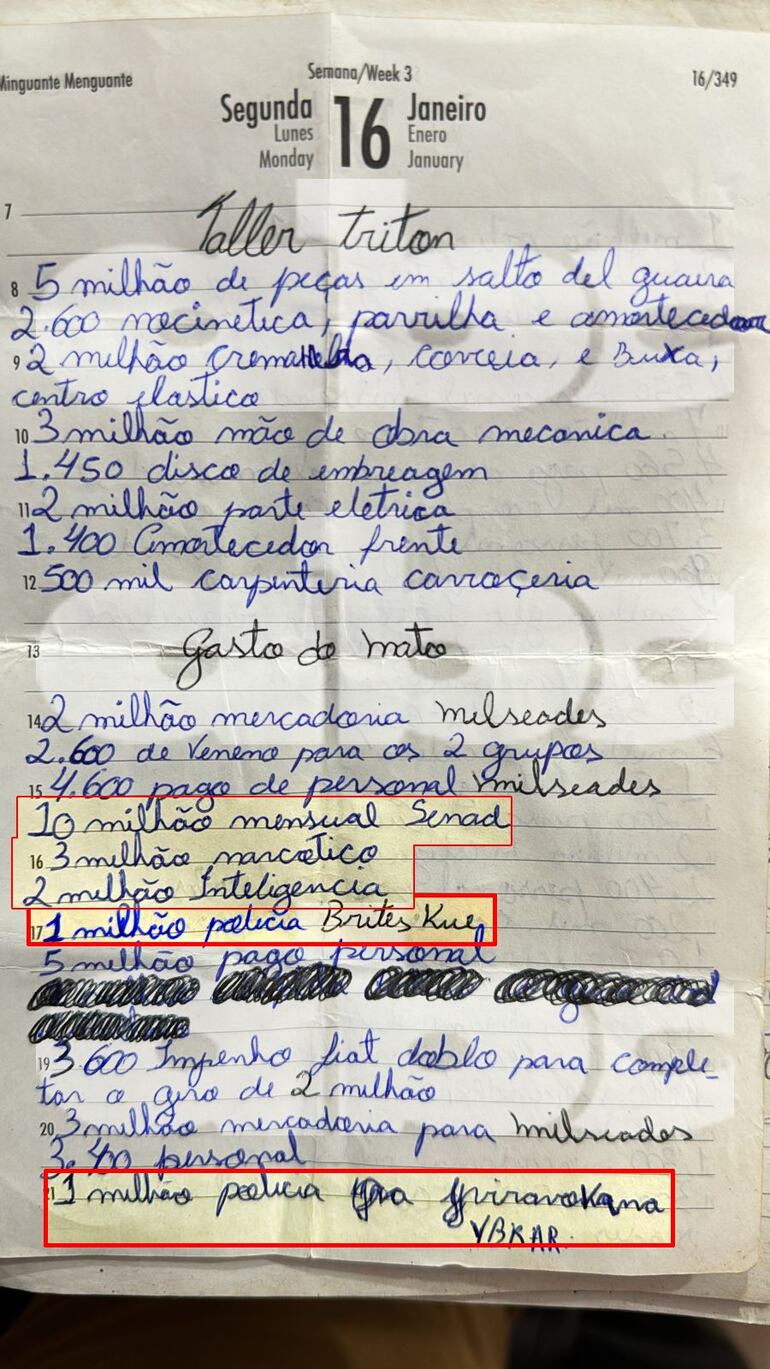 Minguante Menguante
Semana/Week 3
16/349
Segunda 16 Janeiro
Lunes Enero
Monday January
7
Taller triton
8 5 milhão de peças em salto del guaira
2.600 nocinetica, parrilha e amortecedor
9 2 milhão, correia, e Buxa,
centro elastico
10 3 milhão mão de obra mecanica
1.450 disco de embreagem
11 2 milhão parte eletrica
1.400 Amortecedor frente
12 500 mil carpinteria carroçeria
13 Gasto do mato
14 2 milhão mercadoria milseades
2.600 de Veneno para os 2 grupos
15 4.600 pago de personal milseades
10 milhão mensual Senad
16 3 milhão narcotico
2 milhão Inteligencia
17 1 milhão policia Brites Kue
5 milhão pago personal
19 3.600 Impenho fiat doblo para comple-
tar o giro de 2 milhão
20 3 milhão mercadoria para milseades
3.400 personal
21 1 milhão policia